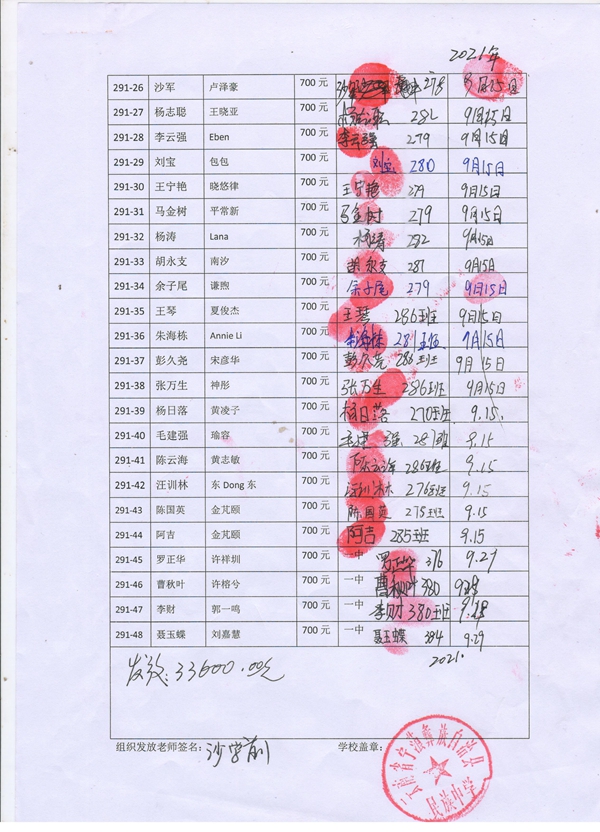 2021年
291-26 沙军 卢泽豪 700元 278 15日
291-27 杨志聪 王晓亚 700元 杨志聪 282 9月15日
291-28 李云强 Eben 700元 李云强 279 9月15日
291-29 刘宝 包包 700元 刘宝 280 9月15日
291-30 王宁艳 晓悠律 700元 王宁艳 279 9月15日
291-31 马金树 平常新 700元 马金树 279 9月15日
291-32 杨涛 Lana 700元 杨涛 9月15日
291-33 胡永支 南汐 700元 胡永支 287 9月15日
291-34 余子尾 谦煦 700元 余子尾 279 9月15日
291-35 王琴 夏俊杰 700元 王琴 286班 9月15日
291-36 朱海栋 Annie Li 700元 朱海栋 281班 9月15日
291-37 彭久尧 宋彦华 700元 彭久尧 286班 9月15日
291-38 张万生 神彤 700元 张万生 286班 9月15日
291-39 杨日落 黄凌子 700元 杨日落 270班 9.15.
291-40 毛建强 瑜容 700元 毛建强 287班 9.15
291-41 陈云海 黄志敏 700元 陈云海 286班 9.15
291-42 汪训林 东Dong东 700元 汪训林 276班 9.15
291-43 陈国英 金芃颐 700元 陈国英 275班 9.15
291-44 阿吉 金芃颐 700元 阿吉 285班 9.15
291-45 罗正华 许祥圳 700元 一中 罗正华 376 9.27
291-46 曹秋叶 许榕兮 700元 一中 曹秋叶 380 9.28
291-47 李财 郭一鸣 700元 一中 李财 380班 9.28
291-48 聂玉蝶 刘嘉慧 700元 一中 聂玉蝶 384 9.29
发放:33600.00元 2021.
组织发放老师签名: 学校盖章:
云南省宁蒗彝族自治县
民族中学